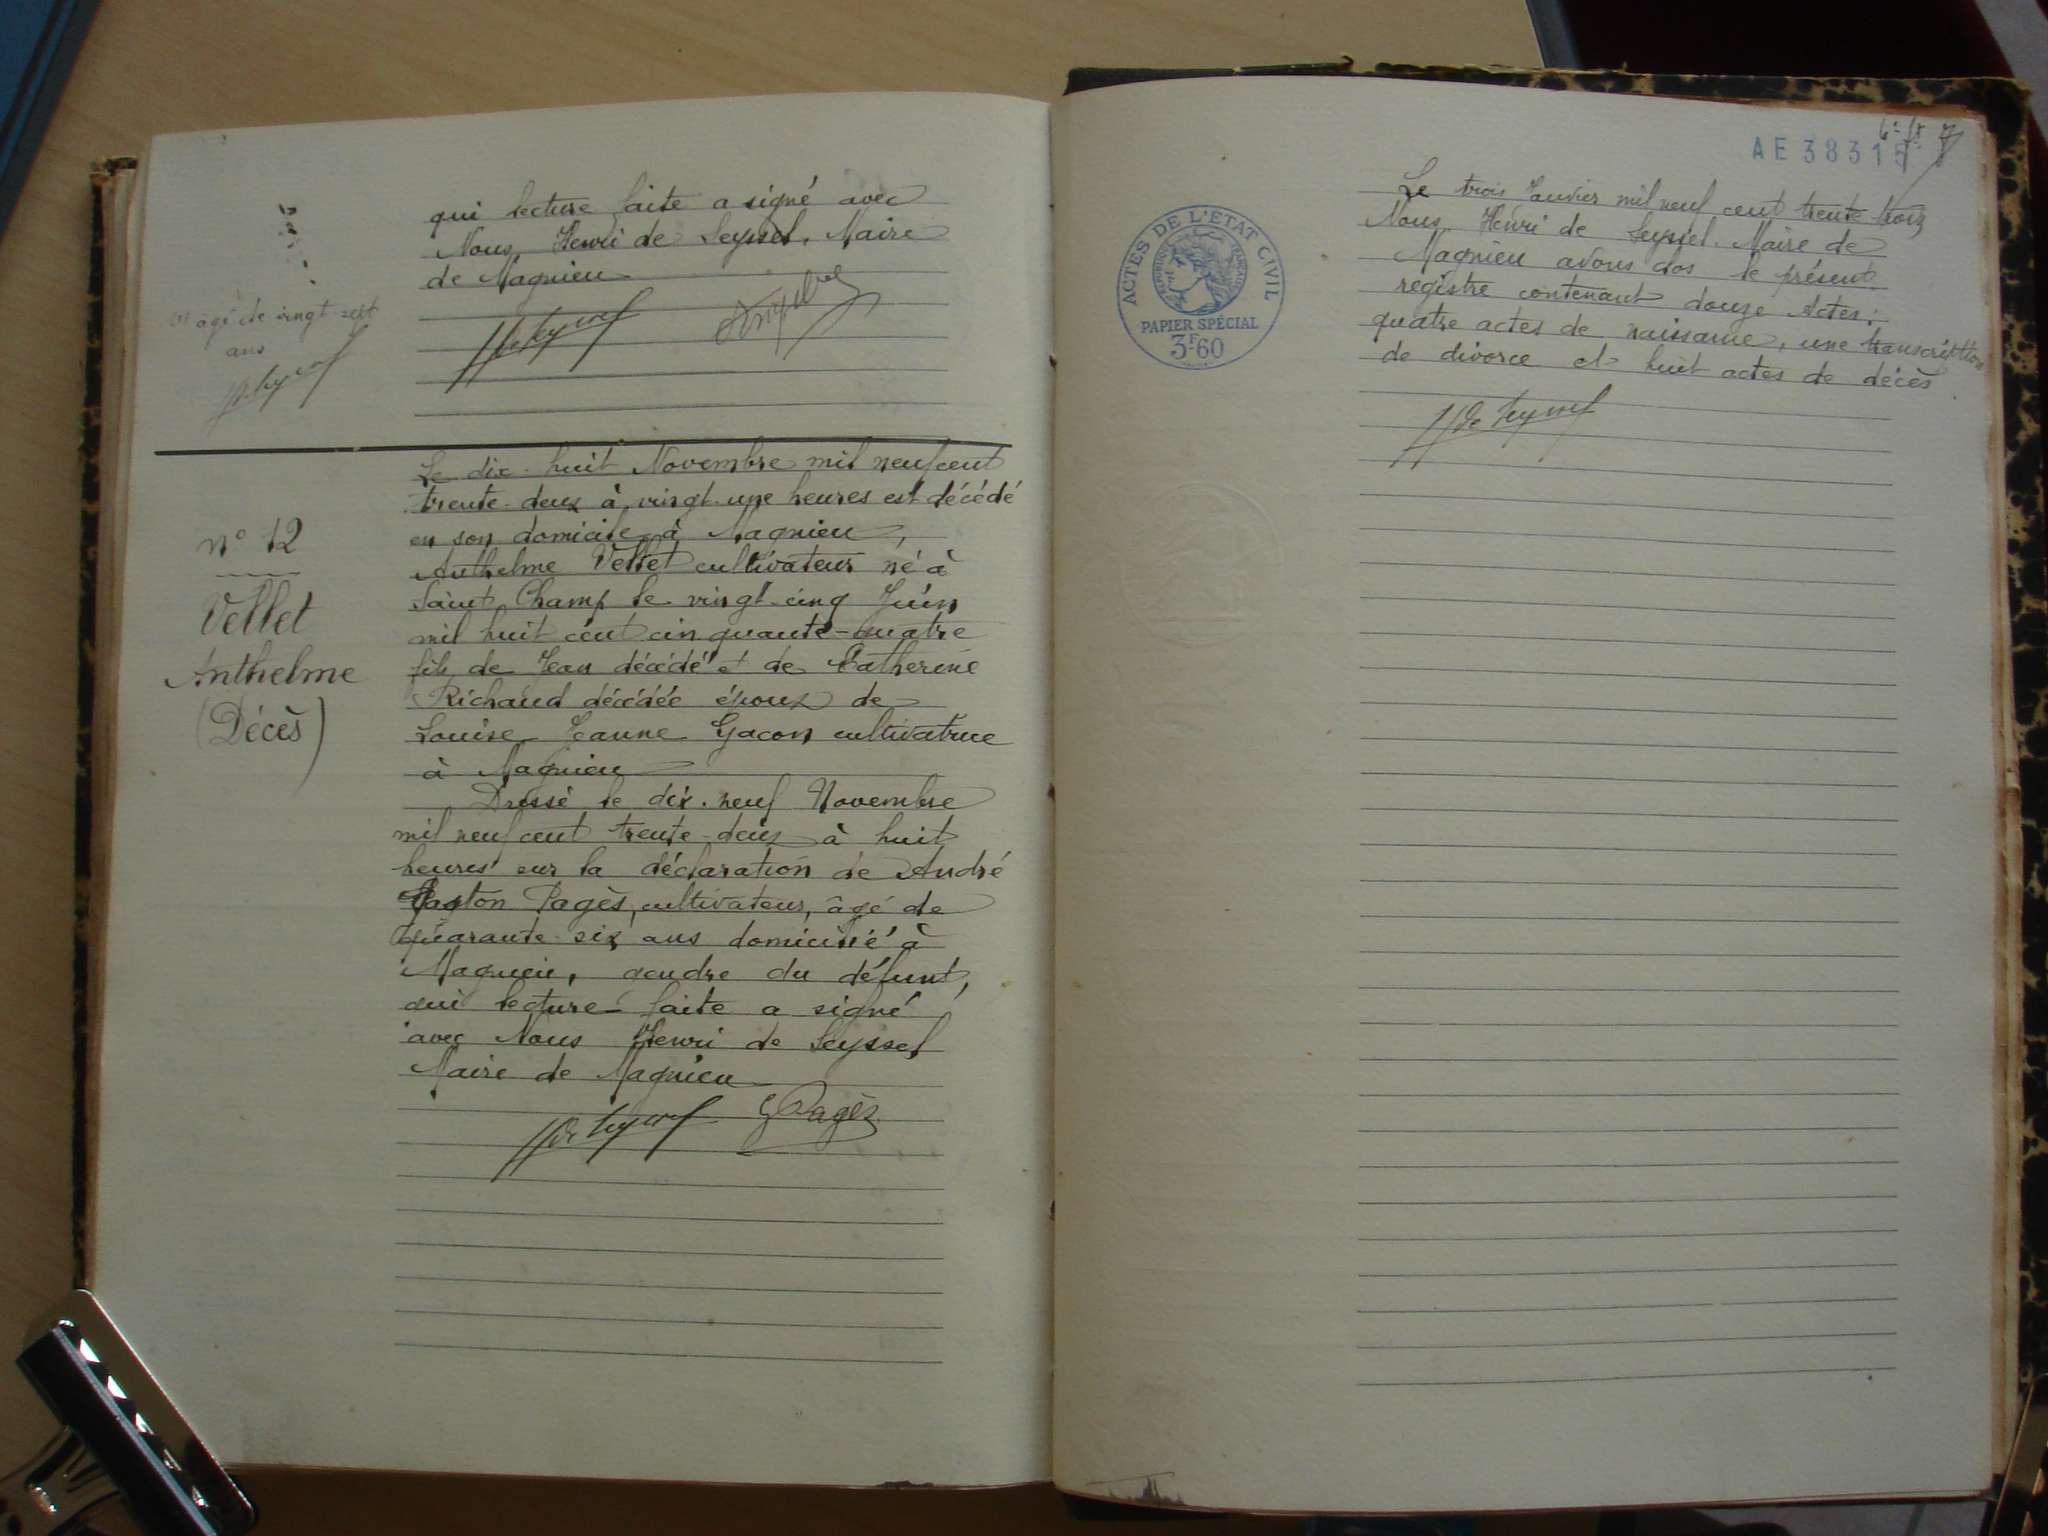 qui lecture faite a signé avec
Nous, Henri de Seyssel, Maire
de Magnieu
(1) âgé de vingt sept
ans
n° 12
Vellet
Anthelme
(Décès)
Le dix-huit Novembre mil neuf cent
trente-deux à vingt-une heures est décédé
en son domicile à Magnieu,
Anthelme Vellet cultivateur né à
Saint Champ le vingt-cinq Juin
mil huit cent cinquante-quatre
fils de Jean décédé et de Catherine
Richaud décédée époux de
Louise Jeanne Gacon cultivatrice
à Magnieu
Dressé le dix-neuf Novembre
mil neuf cent trente-deux à huit
heures sur la déclaration de André
Gaston Pagès, cultivateur, âgé de
quarante-six ans domicilié à
Magnieu, gendre du défunt,
qui lecture faite a signé
avec Nous Henri de Seyssel
Maire de Magnieu
H de Seyssel G Pagès
AE 38315
7
ACTES DE L'ÉTAT CIVIL
RÉPUBLIQUE FRANÇAISE
PAPIER SPÉCIAL
3F60
Le trois Janvier mil neuf cent trente trois
Nous, Henri de Seyssel, Maire de
Magnieu avons clos le présent
registre contenant douze Actes:
quatre actes de naissance, une transcription
de divorce et huit actes de décès
H de Seyssel